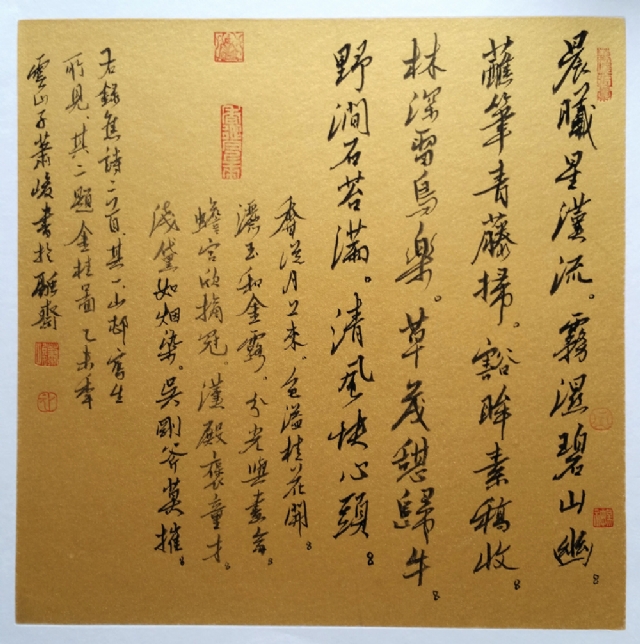 晨曦星漢流。霧濕碧山幽。
蘸筆青藤掃。豁眸素稿收。
林深留鳥樂。草茂憩歸牛。
野澗石苔滿。清風快心頭。
香從月上來、色溢桂花開。
濃玉和金露、分光與素
蟾宮欣摘冠。漢殿褒童才。
淺黛如烟染。吳剛斧莫摧。
右錄舊詩二首、其一山邨寫生
所見、其二題金桂圖 乙未年
雲山子蕭峻書於 齋